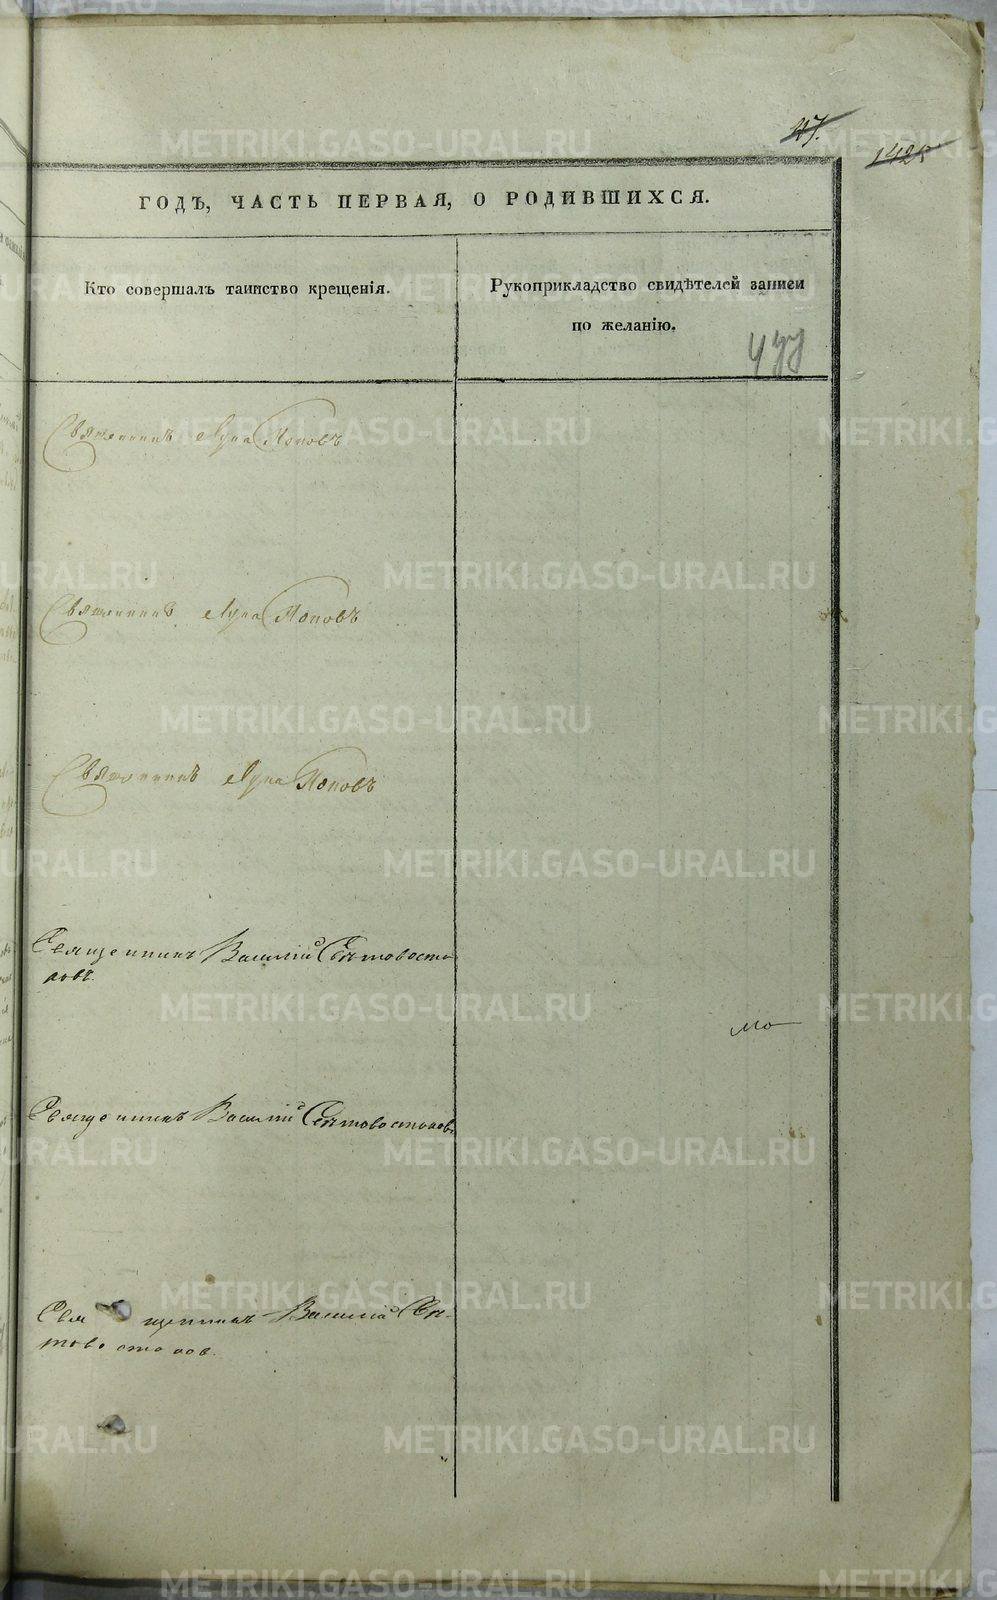 47.
1425
ГОДЪ, ЧАСТЬ ПЕРВАЯ, О РОДИВШИХСЯ.
Кто совершалъ таинство крещенія.
Рукоприкладство свидѣтелей записи
по желанію.
477
Священникъ Лука Поповъ
Священникъ Лука Поповъ
Священникъ Лука Поповъ
Священникъ Василій
Священникъ Василій
Священникъ Василій
METRIKI.GASO-URAL.RU